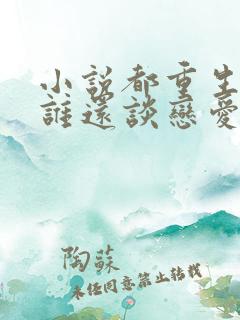 小説都重生
誰還談戀愛
陶蘇
未經同意禁止轉載